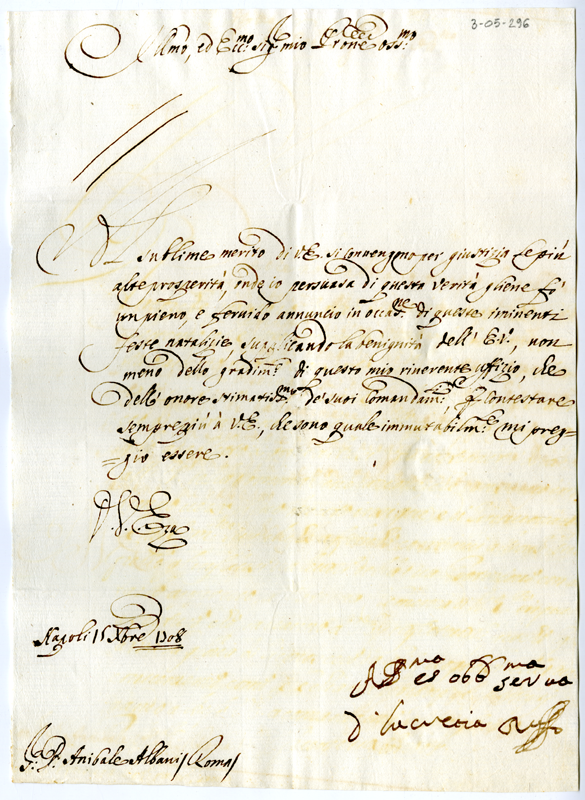 3-05-296
Ill.mo, ed Ecc.mo Sig.e mio Prone oss.mo
Al sublime merito di V.E. si convengono per giustizia le più
alte prosperità, onde io persuasa di questa verità gliene fò
un pieno, e fervido annuncio in occas.ne di queste iminenti
feste natalizie supplicando la benignità dell' E.V., non
meno dello gradim.to di questo mio riverente uffizio, che
dell' onore stimatis.mo de' suoi Comandam.ti, p contestare
sempre più à V.E., che sono quale immutabilm.te mi preg=
=gio essere.
D. V. Eza
Napoli 15 Xbre 1708
Di.ma et obb.ma serva
D. Lucretia Ruffo
S. D. Anibale Albani / Roma /